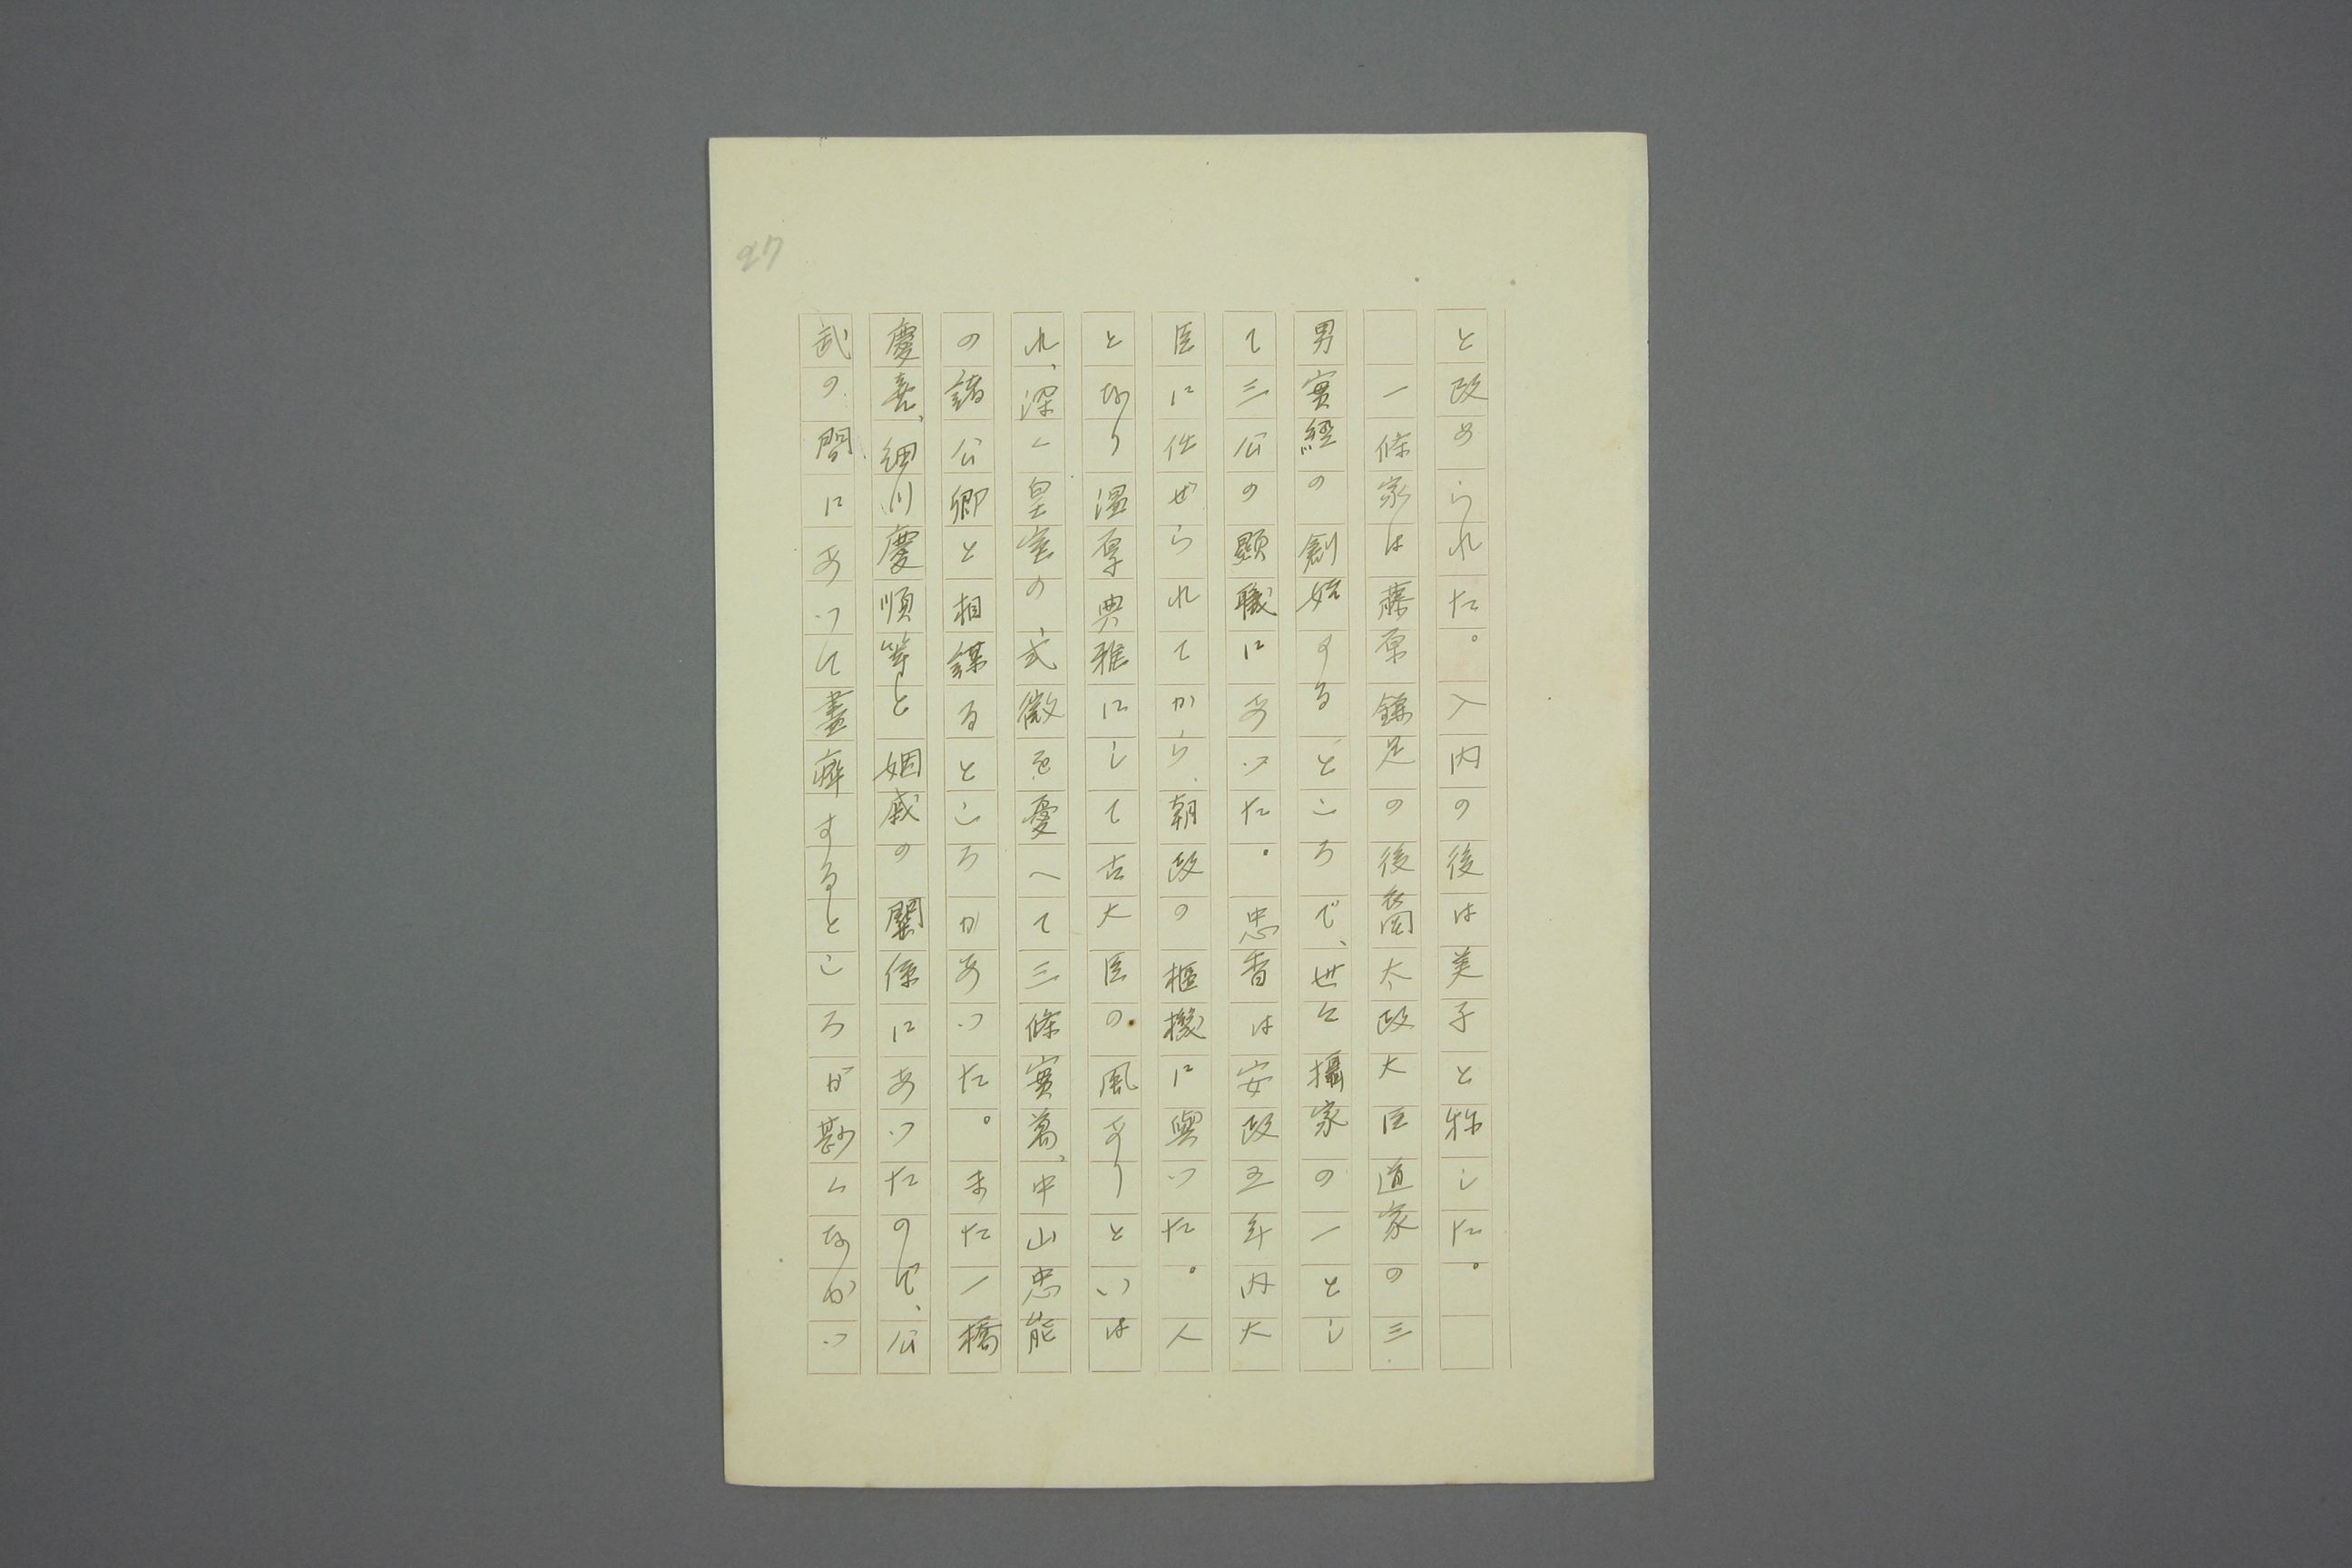 27
と改められた。入内の後は美子と称した。
一條家は藤原鎌足の後裔太政大臣道家の三
男實經の創始するところで、世々攝家の一とし
て三公の顯職にあつた。忠香は安政五年内大
臣に任ぜられてから、朝政の樞機に與つた。人
となり温厚典雅にして古大臣の風ありといは
れ、深く皇室の式微を憂へて三條實萬、中山忠能
の諸公卿と相謀るところがあつた。また一橋
慶喜、細川慶順等と姻戚の關係にあつたので、公
武の間にあつて盡瘁するところが尠くなかつ